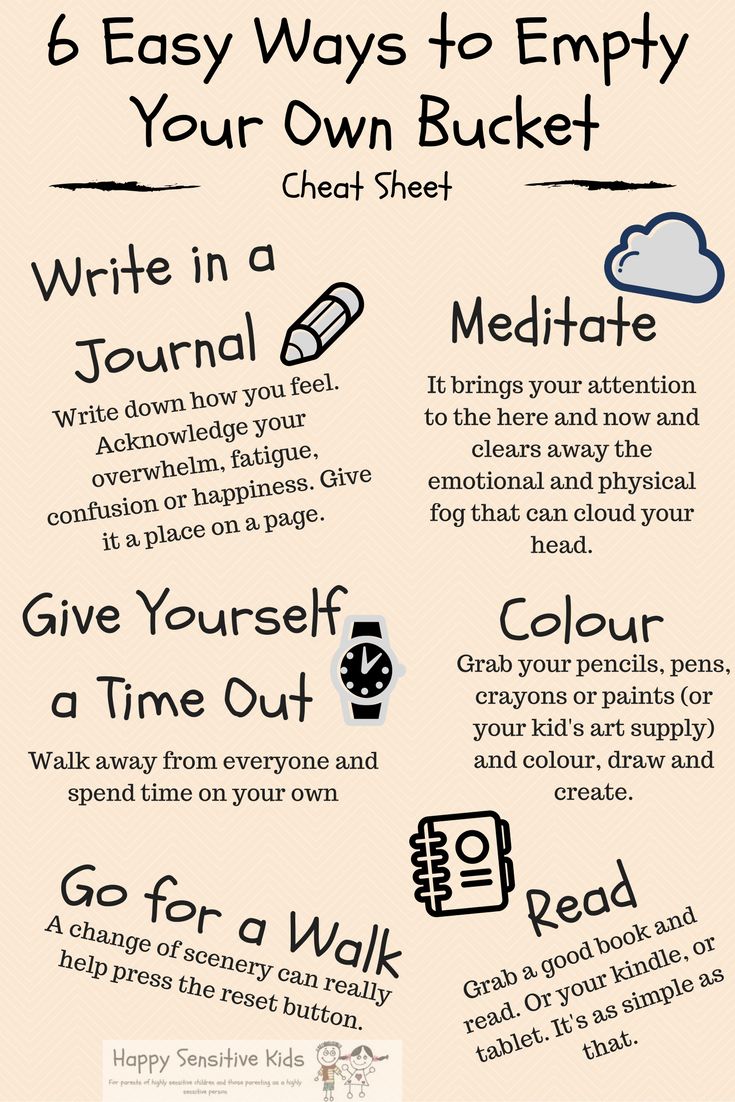 6 Easy Ways to Empty
Your Own Bucket
Cheat Sheet
Write in a
Journal
Write down how you feel.
Acknowledge your
overwhelm, fatigue,
confusion or happiness. Give
it a place on a page.
Meditate
It brings your attention
to the here and now and
clears away the
emotional and physical
fog that can cloud your
head.
Give Yourself
a Time Out
Walk away from everyone and
spend time on your own
Colour
Grab your pencils, pens,
crayons or paints (or
your kid's art supply)
and colour, draw and
create.
Go for a Walk
A change of scenery can really
help press the reset button.
Read
Grab a good book and
read. Or your kindle, or
tablet. It's as simple as
that.
Happy Sensitive Kids
For parents of highly sensitive children and those parenting as a highly
sensitive person